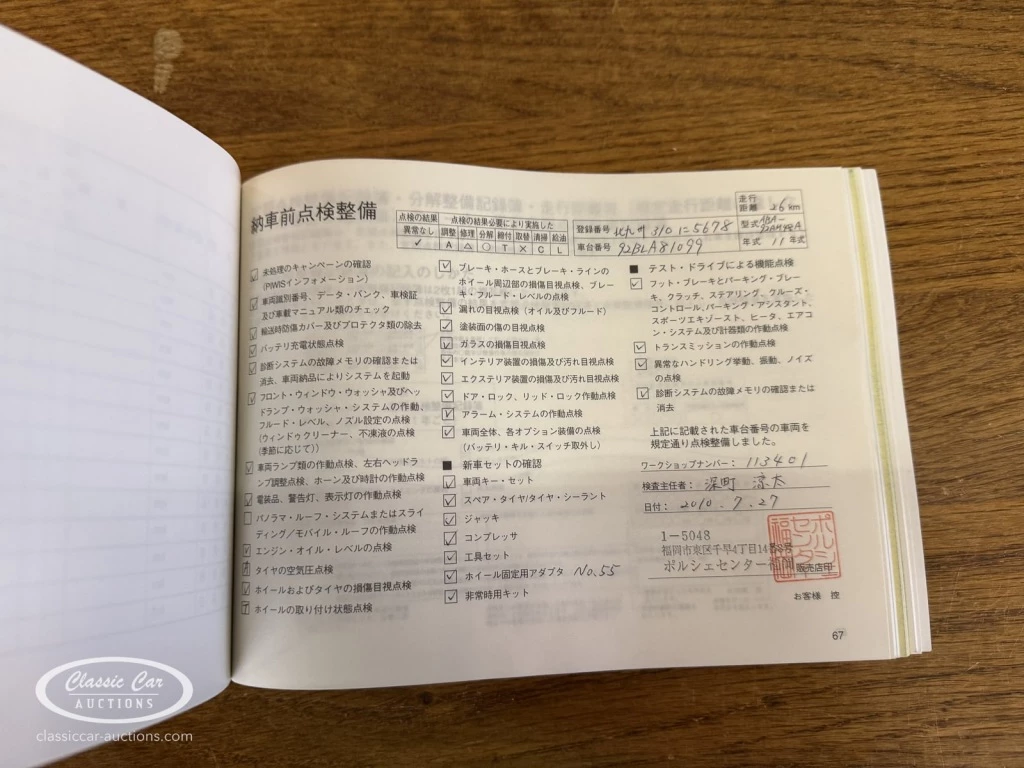 納車前点検整備
点検の結果 点検の結果必要により実施した
異常なし 調整 修理 分解 締付 取替 清掃 給油
✓ A △ ○ T × C L
登録番号 北九州 310 に 5678
車台番号
走行距離 26 km
型式 ABA-
年式 11 年式
☑ 未処理のキャンペーンの確認
(PIWISインフォメーション)
☑ 車両識別番号、データ・バンク、車検証
及び車載マニュアル類のチェック
☑ 輸送時防傷カバー及びプロテクタ類の除去
☑ バッテリ充電状態点検
☑ 診断システムの故障メモリの確認または
消去、車両納品によりシステムを起動
☑ フロント・ウィンドウ・ウォッシャ及びヘッ
ドランプ・ウォッシャ・システムの作動、
フルード・レベル、ノズル設定の点検
(ウィンドゥクリーナー、不凍液の点検
(季節に応じて))
☑ 車両ランプ類の作動点検、左右ヘッドラ
ンプ調整点検、ホーン及び時計の作動点検
☑ 電装品、警告灯、表示灯の作動点検
□ パノラマ・ルーフ・システムまたはスライ
ディング／モバイル・ルーフの作動点検
☑ エンジン・オイル・レベルの点検
A タイヤの空気圧点検
☑ ホイールおよびタイヤの損傷目視点検
T ホイールの取り付け状態点検
☑ ブレーキ・ホースとブレーキ・ラインの
ホイール周辺部の損傷目視点検、ブレー
キ・フルード・レベルの点検
☑ 漏れの目視点検（オイル及びフルード）
☑ 塗装面の傷の目視点検
☑ ガラスの損傷目視点検
☑ インテリア装置の損傷及び汚れ目視点検
☑ エクステリア装置の損傷及び汚れ目視点検
☑ ドア・ロック、リッド・ロック作動点検
☑ アラーム・システムの作動点検
☑ 車両全体、各オプション装備の点検
(バッテリ・キル・スイッチ取外し)
■ 新車セットの確認
☑ 車両キー・セット
☑ スペア・タイヤ/タイヤ・シーラント
☑ ジャッキ
☑ コンプレッサ
☑ 工具セット
☑ ホイール固定用アダプタ No.55
☑ 非常時用キット
■ テスト・ドライブによる機能点検
☑ フット・ブレーキ及びパーキング・ブレー
キ、クラッチ、ステアリング、クルーズ・
コントロール,パーキング・アシスタント、
スポーツエキゾースト、ヒータ、エアコ
ン・システム及び計器類の作動点検
☑ トランスミッションの作動点検
☑ 異常なハンドリング挙動、振動、ノイズ
の点検
☑ 診断システムの故障メモリの確認または
消去
上記に記載された車台番号の車両を
規定通り点検整備しました。
ワークショップナンバー： 113401
検査主任者： 深町 涼太
日付： 2010. 9. 27
1-5048
福岡市東区千早4丁目14番
ポルシェセンター福岡
販売店印
お客様 控
67
Classic Car
AUCTIONS
classiccar-auctions.com